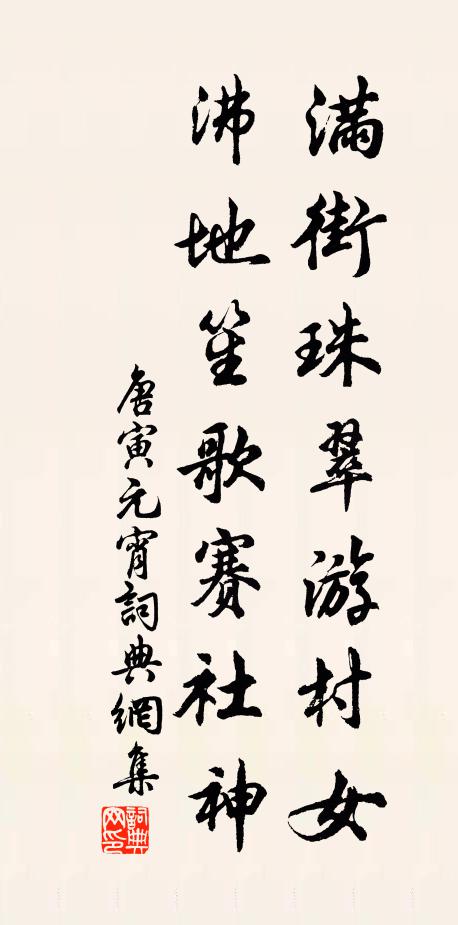 满街珠翠游村女
沸地笙歌赛社神
唐寅元宵詞典網集
詞典网印